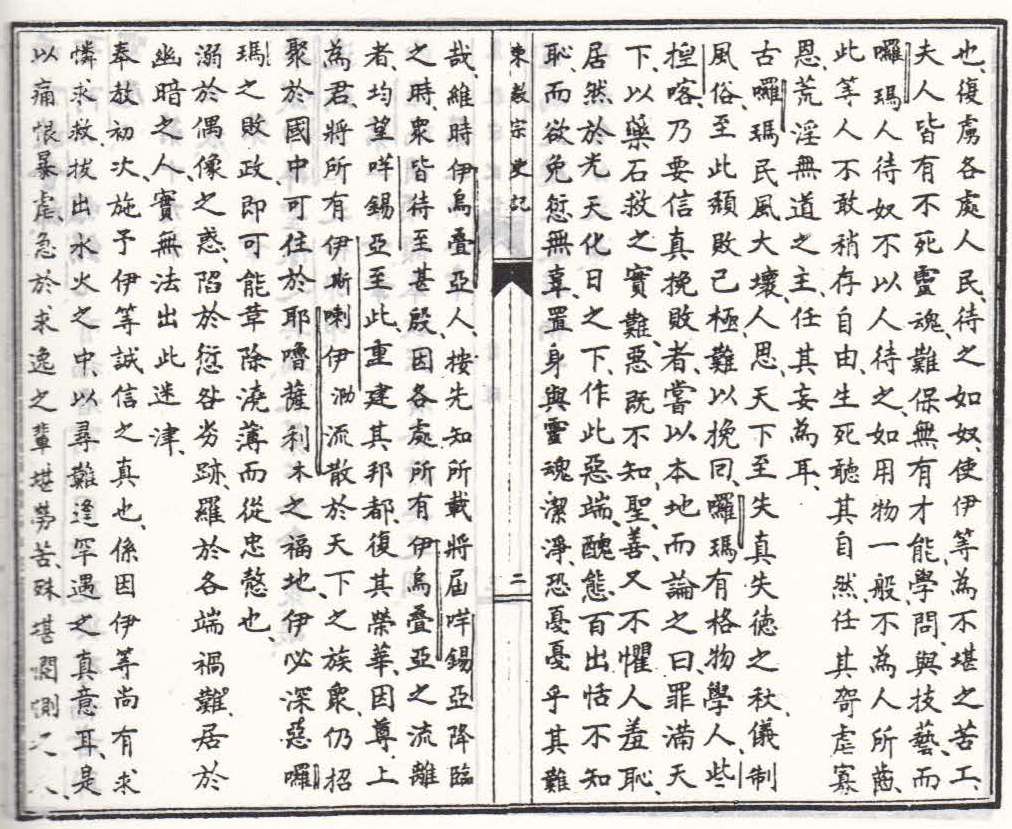 也、復虜各處人民、待之如奴、使伊等為不堪之苦工、
夫人皆有不死靈魂、難保無有才能、學問、與技藝、而
囉瑪人待奴不以人待之、如用物一般、不為人所齒、
此等人不敢稍存自由、生死聽其自然任其苛虐寡
恩、荒淫無道之主、任其妄為耳、
古囉瑪民風大壞、人思、天下至失真失徳之秋、儀制
風俗、至此頽敗已極、難以挽囘、囉瑪有格物學人、些
揑喀、乃要信真挽敗者、嘗以本地而論之曰、罪滿天
下、以藥石救之實難、惡既不知、聖、善、又不懼人羞恥、
居然於光天化日之下、作此惡端、醜態百出恬不知
恥而欲免愆無辜、置身與靈魂潔淨、恐戞戞乎其難
東教宗史記
二
哉、維時伊烏疊亞人、按先知所載將屆哶錫亞降臨
之時衆皆待至甚殷、因各處所有伊烏疊亞之流離
者、均望哶錫亞至此、重建其邦都、復其榮華、因尊上
為君、將所有伊斯喇伊泐流散於天下之族衆、仍招
聚於國中、可住於耶嚕薩利木之福地、伊必深惡囉
瑪之敗政、即可能革除澆薄而從忠慤也、
溺於偶像之惑陷於愆咎劣跡、羅於各端禍難、居於
幽暗之人、實無法出此迷津、
奉教初次施予伊等誠信之真也、係因伊等尚有求
憐求救、拔出水火之中、以尋難逢罕遇之真意耳、是
以痛恨暴虐、急於求逸之輩堪勞苦、殊堪憫惻之人、